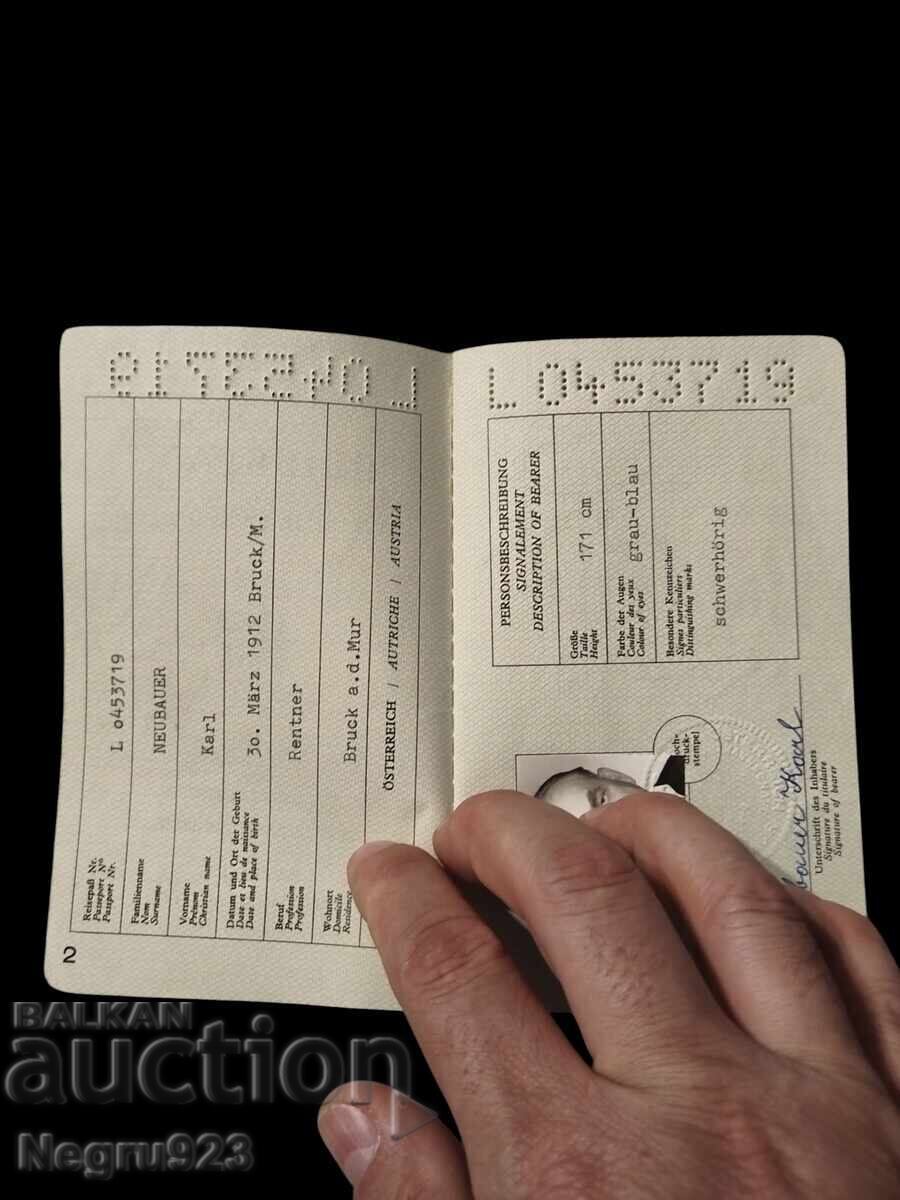 L 0453719
Reisepaß Nr.
Passeport Nº
Passport Nr.
L o453719
Familienname
Nom
Surname
NEUBAUER
Vorname
Prénom
Christian name
Karl
Datum und Ort der Geburt
Date et lieu de naissance
Date and place of birth
3o. März 1912 Bruck/M.
Beruf
Profession
Profession
Rentner
Wohnort
Domicile
Residence
Bruck a.d.Mur
ÖSTERREICH / AUTRICHE / AUSTRIA
2
L 0453719
PERSONSBESCHREIBUNG
SIGNALEMENT
DESCRIPTION OF BEARER
Größe
Taille
Height
171 cm
Farbe der Augen
Couleur des yeux
Colour of eyes
grau-blau
Besondere Kennzeichen
Signes particuliers
Distinguishing marks
schwerhörig
druck-
stempel
Karl
Unterschrift des Inhabers
Signature du titulaire
Signature of bearer
BALKAN
auction
Negru923